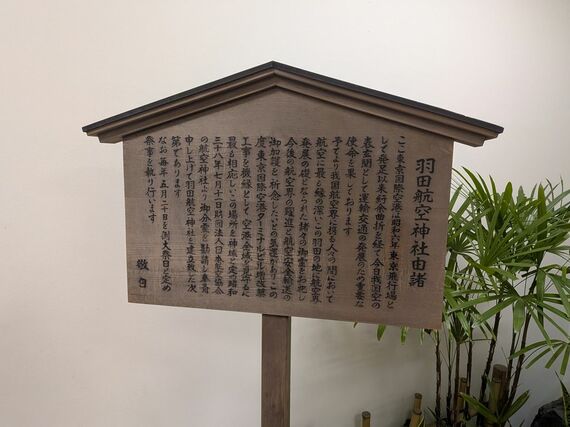 羽田航空神社由緒
ここ東京国際空港は昭和六年東京飛行場と
して発足以来紆余曲折を経て今日我国空の
表玄関として運輸交通の発展のため重要な
使命を果しております
予てより我国航空界に携る人々の間において
航空に最も縁の深いこの羽田の地に航空界
発展の礎となられた諸々の御霊をお祀し
今後の航空界の躍進と航空安全輸送の
御加護を祈念したいとの気運がありこの
度東京国際空港ターミナルビル増改築
工事を機縁として空港全域を見守るに
最も相応しいこの場所を神域と定め昭和
三十八年七月二日財団法人日本航空協会
の航空神社より御分霊を勧請し奉斎
申し上げて羽田航空神社を建立致した次
第であります
なお毎年五月二十日を例大祭日と定め
祭事を執り行います
敬白